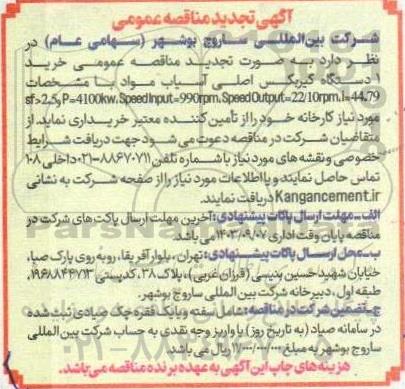 آگهی تجدید مناقصه عمومی
شرکت بین‌المللی ساروج بوشهر (سهامی عام) در
نظر دارد به صورت تجدید مناقصه عمومی خرید
۱ دستگاه گیربکس اصلی آسیاب مواد با مشخصات
sf>2.5, P=4100kw, Speed Input=990rpm, Speed Output=22/10rpm, I=44.79
مورد نیاز کارخانه خود را از تأمین کننده معتبر خریداری نماید. از
متقاضیان شرکت در مناقصه دعوت می شود جهت دریافت شرایط
خصوصی و نقشه های مورد نیاز با شماره تلفن ۸۸۶۷۰۷۱۱-۰۲۱ داخلی ۱۰۸
تماس حاصل نمایند و یا اطلاعات مورد نیاز را از صفحه شرکت به نشانی
Kangancement.ir دریافت نمایند.
الف-مهلت ارسال پاکات پیشنهادی: آخرین مهلت ارسال پاکت‌های شرکت در
مناقصه پایان وقت اداری ۱۴۰۳/۰۹/۰۷ می باشد.
ب-محل ارسال پاکات پیشنهادی: تهران، بلوار آفریقا، روبه روی پارک صبا،
خیابان شهید حسین بدیسی (فرزان غربی)، پلاک ۳۸، کدپستی ۱۹۶۸۸۴۴۷۱۳،
طبقه اول، دبیرخانه شرکت بین المللی ساروج بوشهر.
ج-تضمین شرکت در مناقصه: شامل سفته و یا یک فقره چک صیادی ثبت شده
در سامانه صیاد (به تاریخ روز) یا واریز وجه نقدی به حساب شرکت بین المللی
ساروج بوشهر به مبلغ ریال می باشد.
هزینه های چاپ این آگهی به عهده برنده مناقصه می باشد.